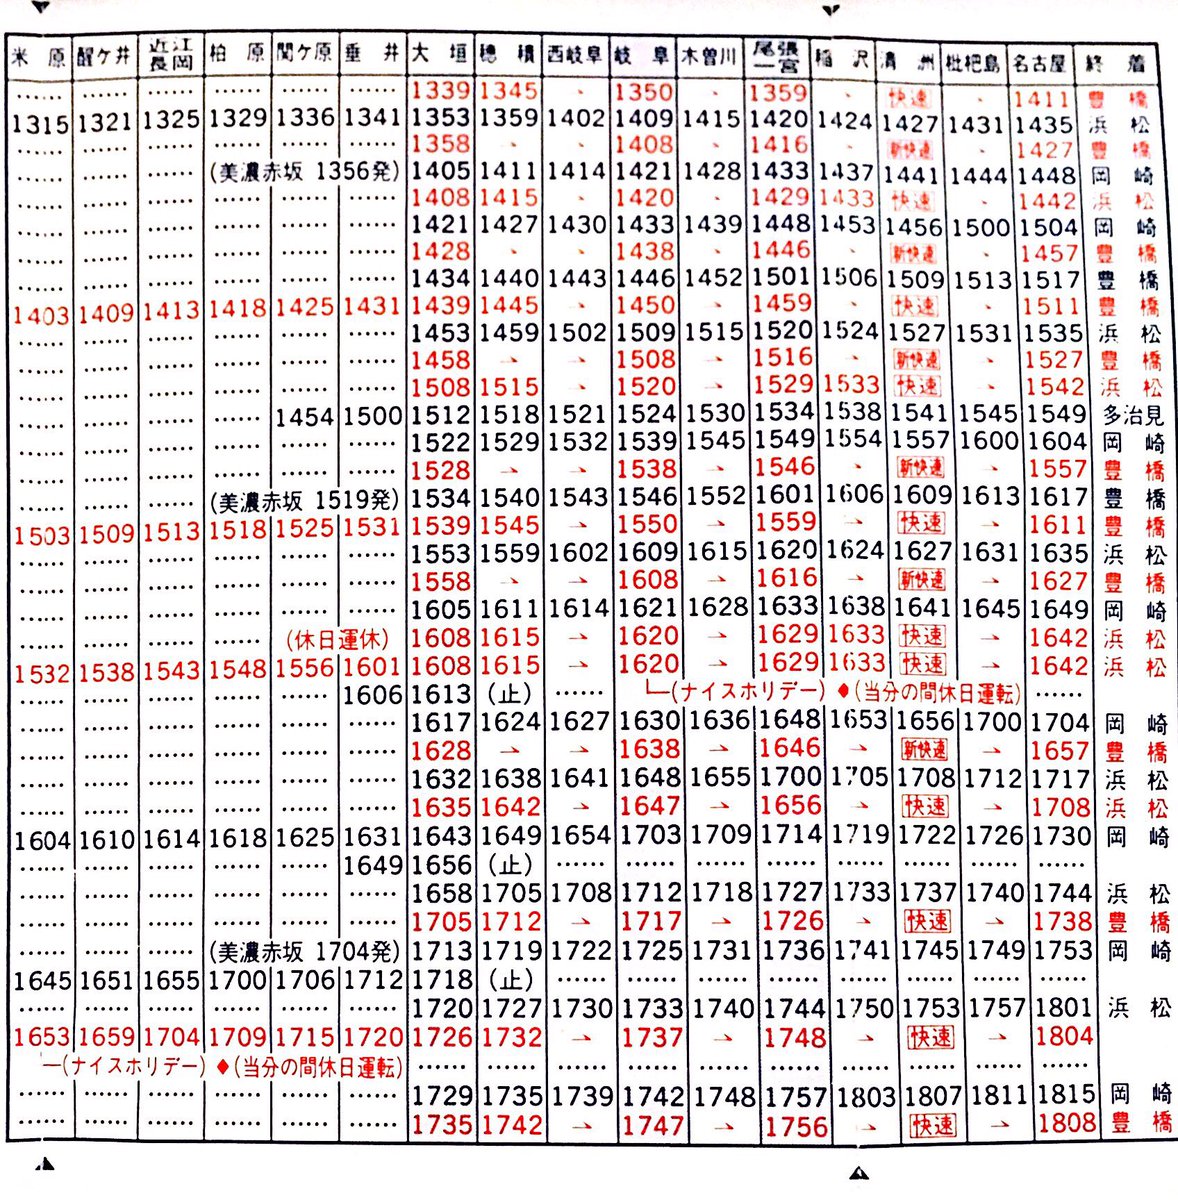 米原 醒ケ井 近江長岡 柏原 関ケ原 垂井 大垣 穂積 西岐阜 岐阜 木曽川 尾張一宮 稲沢 清洲 枇杷島 名古屋 終着
…… …… …… …… …… …… 1339 1345 、 1350 、 1359 、 快速 、 1411 豊橋
1315 1321 1325 1329 1336 1341 1353 1359 1402 1409 1415 1420 1424 1427 1431 1435 浜松
…… …… …… …… …… …… 1358 、 、 1408 、 1416 、 新快速 、 1427 豊橋
…… …… …… (美濃赤坂 1356発) 1405 1411 1414 1421 1428 1433 1437 1441 1444 1448 岡崎
…… …… …… …… …… …… 1408 1415 、 1420 、 1429 1433 快速 、 1442 浜松
…… …… …… …… …… …… 1421 1427 1430 1433 1439 1448 1453 1456 1500 1504 岡崎
…… …… …… …… …… …… 1428 、 、 1438 、 1446 、 新快速 、 1457 豊橋
…… …… …… …… …… …… 1434 1440 1443 1446 1452 1501 1506 1509 1513 1517 豊橋
1403 1409 1413 1418 1425 1431 1439 1445 、 1450 、 1459 、 快速 、 1511 豊橋
…… …… …… …… …… …… 1453 1459 1502 1509 1515 1520 1524 1527 1531 1535 浜松
…… …… …… …… …… …… 1458 → → 1508 → 1516 、 新快速 、 1527 豊橋
…… …… …… …… …… …… 1508 1515 → 1520 → 1529 1533 快速 、 1542 浜松
…… …… …… …… 1454 1500 1512 1518 1521 1524 1530 1534 1538 1541 1545 1549 多治見
…… …… …… …… …… …… 1522 1529 1532 1539 1545 1549 1554 1557 1600 1604 岡崎
…… …… …… …… …… …… 1528 → → 1538 → 1546 、 新快速 → 1557 豊橋
…… …… …… (美濃赤坂 1519発) 1534 1540 1543 1546 1552 1601 1606 1609 1613 1617 豊橋
1503 1509 1513 1518 1525 1531 1539 1545 → 1550 → 1559 → 快速 → 1611 豊橋
…… …… …… …… …… …… 1553 1559 1602 1609 1615 1620 1624 1627 1631 1635 浜松
…… …… …… …… …… …… 1558 → → 1608 → 1616 → 新快速 → 1627 豊橋
…… …… …… …… …… …… 1605 1611 1614 1621 1628 1633 1638 1641 1645 1649 岡崎
…… …… …… …… (休日運休) 1608 1615 → 1620 → 1629 1633 快速 → 1642 浜松
1532 1538 1543 1548 1556 1601 1608 1615 → 1620 → 1629 1633 快速 → 1642 浜松
…… …… …… …… …… 1606 1613 (止) …… └─(ナイスホリデー) ♦(当分の間休日運転) ……
…… …… …… …… …… …… 1617 1624 1627 1630 1636 1648 1653 1656 1700 1704 岡崎
…… …… …… …… …… …… 1628 → → 1638 → 1646 → 新快速 → 1657 豊橋
…… …… …… …… …… …… 1632 1638 1641 1648 1655 1700 1705 1708 1712 1717 浜松
…… …… …… …… …… …… 1635 1642 → 1647 → 1656 → 快速 → 1708 浜松
1604 1610 1614 1618 1625 1631 1643 1649 1654 1703 1709 1714 1719 1722 1726 1730 岡崎
…… …… …… …… …… 1649 1656 (止) …… …… …… …… …… …… …… ……
…… …… …… …… …… …… 1658 1705 1708 1712 1718 1727 1733 1737 1740 1744 浜松
…… …… …… …… …… …… 1705 1712 → 1717 → 1726 → 快速 → 1738 豊橋
…… …… …… (美濃赤坂 1704発) 1713 1719 1722 1725 1731 1736 1741 1745 1749 1753 岡崎
1645 1651 1655 1700 1706 1712 1718 (止) …… …… …… …… …… …… …… ……
…… …… …… …… …… …… 1720 1727 1730 1733 1740 1744 1750 1753 1757 1801 浜松
1653 1659 1704 1709 1715 1720 1726 1732 → 1737 → 1748 → 快速 → 1804
─(ナイスホリデー) ♦(当分の間休日運転) …… …… …… …… …… …… …… …… …… ……
…… …… …… …… …… …… 1729 1735 1739 1742 1748 1757 1803 1807 1811 1815 岡崎
…… …… …… …… …… …… 1735 1742 → 1747 → 1756 → 快速 → 1808 豊橋